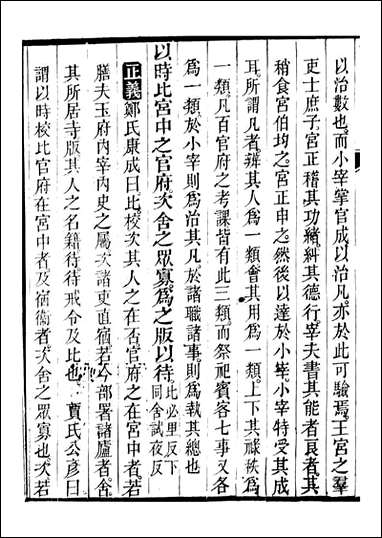 以治數也而小宰掌官成以治凡亦於此可驗焉王宮之羣
吏士庶子宮正稽其功緒糾其德行宰夫書其能者良者其
稍食宮伯均之宮正申之然後以達於小宰小宰特受其成
耳所謂凡者辨其人為一類會其用為一類上下其祿秩為
一類凡百官府之考課皆有此三類而祭祀賓客七事又各
為一類於小宰則為治其凡於諸職諸事則為執其總也
以時比宮中之官府次舍之眾寡為之版以待比必里反下同舍試夜反
正義鄭氏康成曰比校次其人之在否官府之在宮中者若
膳夫玉府內宰內史之屬次諸吏直宿若今部署諸廬者舍
其所居寺版其人之名籍待待戒令及比也 賈氏公彥曰
謂以時校比官府在宮中者及宿衞者次舍之眾寡也次若